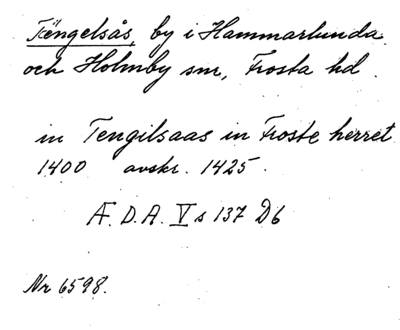 Tängelsås, by i Hammarlunda
och Holmby sn, Frosta hd.
in Tengilsaas in Froste herret
1400 avskr. 1425.
Æ.D.A. V s 137 D6
Nr 6598.